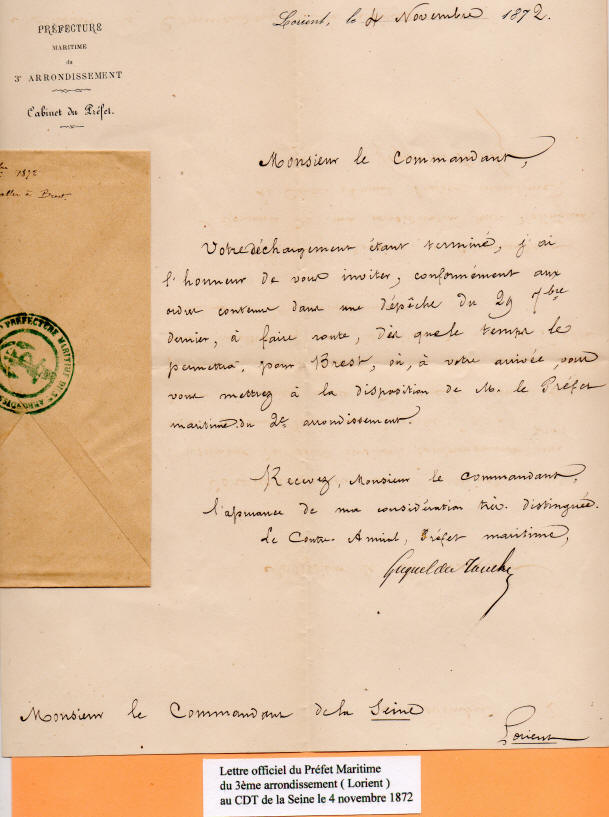 PRÉFECTURE
MARITIME
du
3e ARRONDISSEMENT
Cabinet du Préfet.
Lorient, le 4 Novembre 1872.
1872
à Brest.
PREFECTURE MARITIME DU 3e ARRONDIS
Monsieur le Commandant,
Votre déchargement étant terminé, j'ai
l'honneur de vous inviter, conformément aux
ordres contenus dans une dépêche du 29 7bre
dernier, à faire route, dès que le temps le
permettra, pour Brest, où, à votre arrivée, vous
vous mettrez à la disposition de M. le Préfet
maritime du 2e arrondissement.
Recevez, Monsieur le Commandant,
l'assurance de ma considération très distinguée.
Le Contre-Amiral, Préfet maritime,
Monsieur le Commandant de la Seine
Lorient
Lettre officiel du Préfet Maritime
du 3ème arrondissement ( Lorient )
au CDT de la Seine le 4 novembre 1872